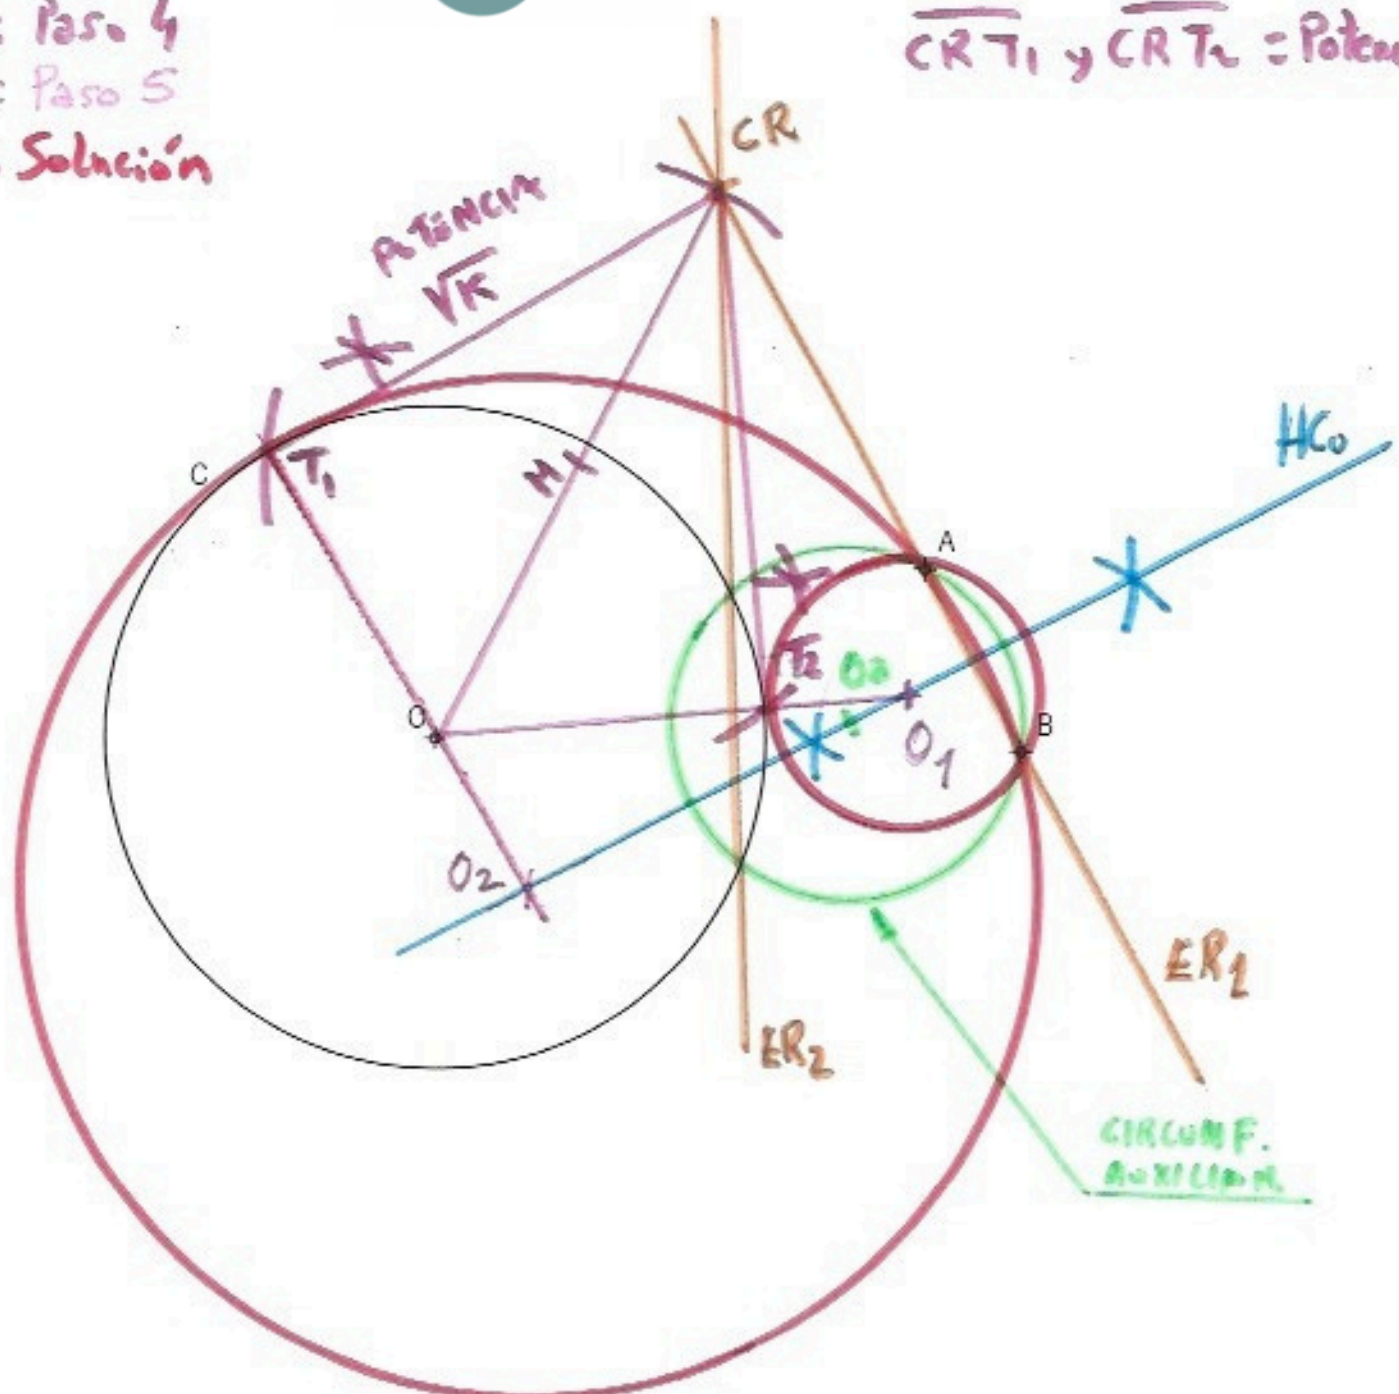 : Paso 4
: Paso 5
Solución
CR T₁ y CR T₂ = Poten
CR
POTENCIA
√K
HC₀
C
T₁
M
A
T₂
Oa
O
O₁
B
O₂
ER₁
ER₂
CIRCUNF.
AUXILIAR.